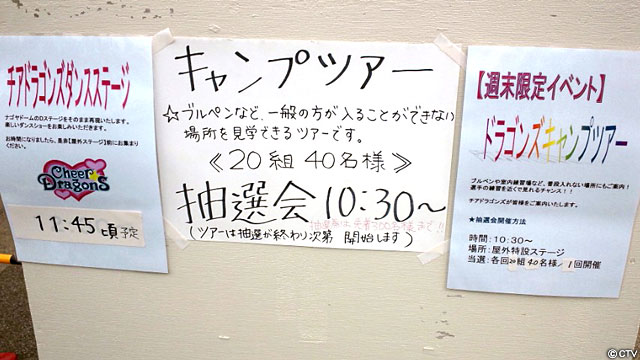 チアドラゴンズダンスステージ
ナゴヤドームのDステージをそのまま再現いたします。
楽しいダンスショーをお楽しみいただきます。
お時間になりましたら、是非【屋外ステージ】前にお集まり
ください。
Cheer
Dragons
11:45頃予定
キャンプツアー
☆ブルペンなど、一般の方が入ることができない
場所を見学できるツアーです。
≪20組40名様≫
抽選会10:30～
抽選券は先着300名様まで!!
(ツアーは抽選が終わり次第 開始します)
【週末限定イベント】
ドラゴンズキャンプツアー
ブルペンや室内練習場など、普段入れない場所にもご案内!
選手の練習を近くで見れるチャンス!!
チアドラゴンズが皆様をご案内いたします。
★抽選会開催方法
時間:10:30～
場所:屋外特設ステージ
当選:各回20組40名様/1回開催
©CTV